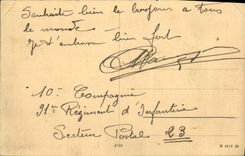 Souhaite bien le bonjour a tous
le monde
je t'embrasse bien fort
10e Compagnie
91e Régiment d'Infanterie
Secteur Postal 23